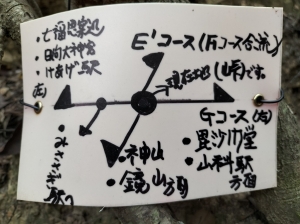 ・七福思案処
・日向大神宮
・けあげ駅
(左)
E'コース(Fコース合流)
現在地(山峠)です。
Gコース(右)
・毘沙門堂
・山科駅
方面
・神山
・鏡山方面